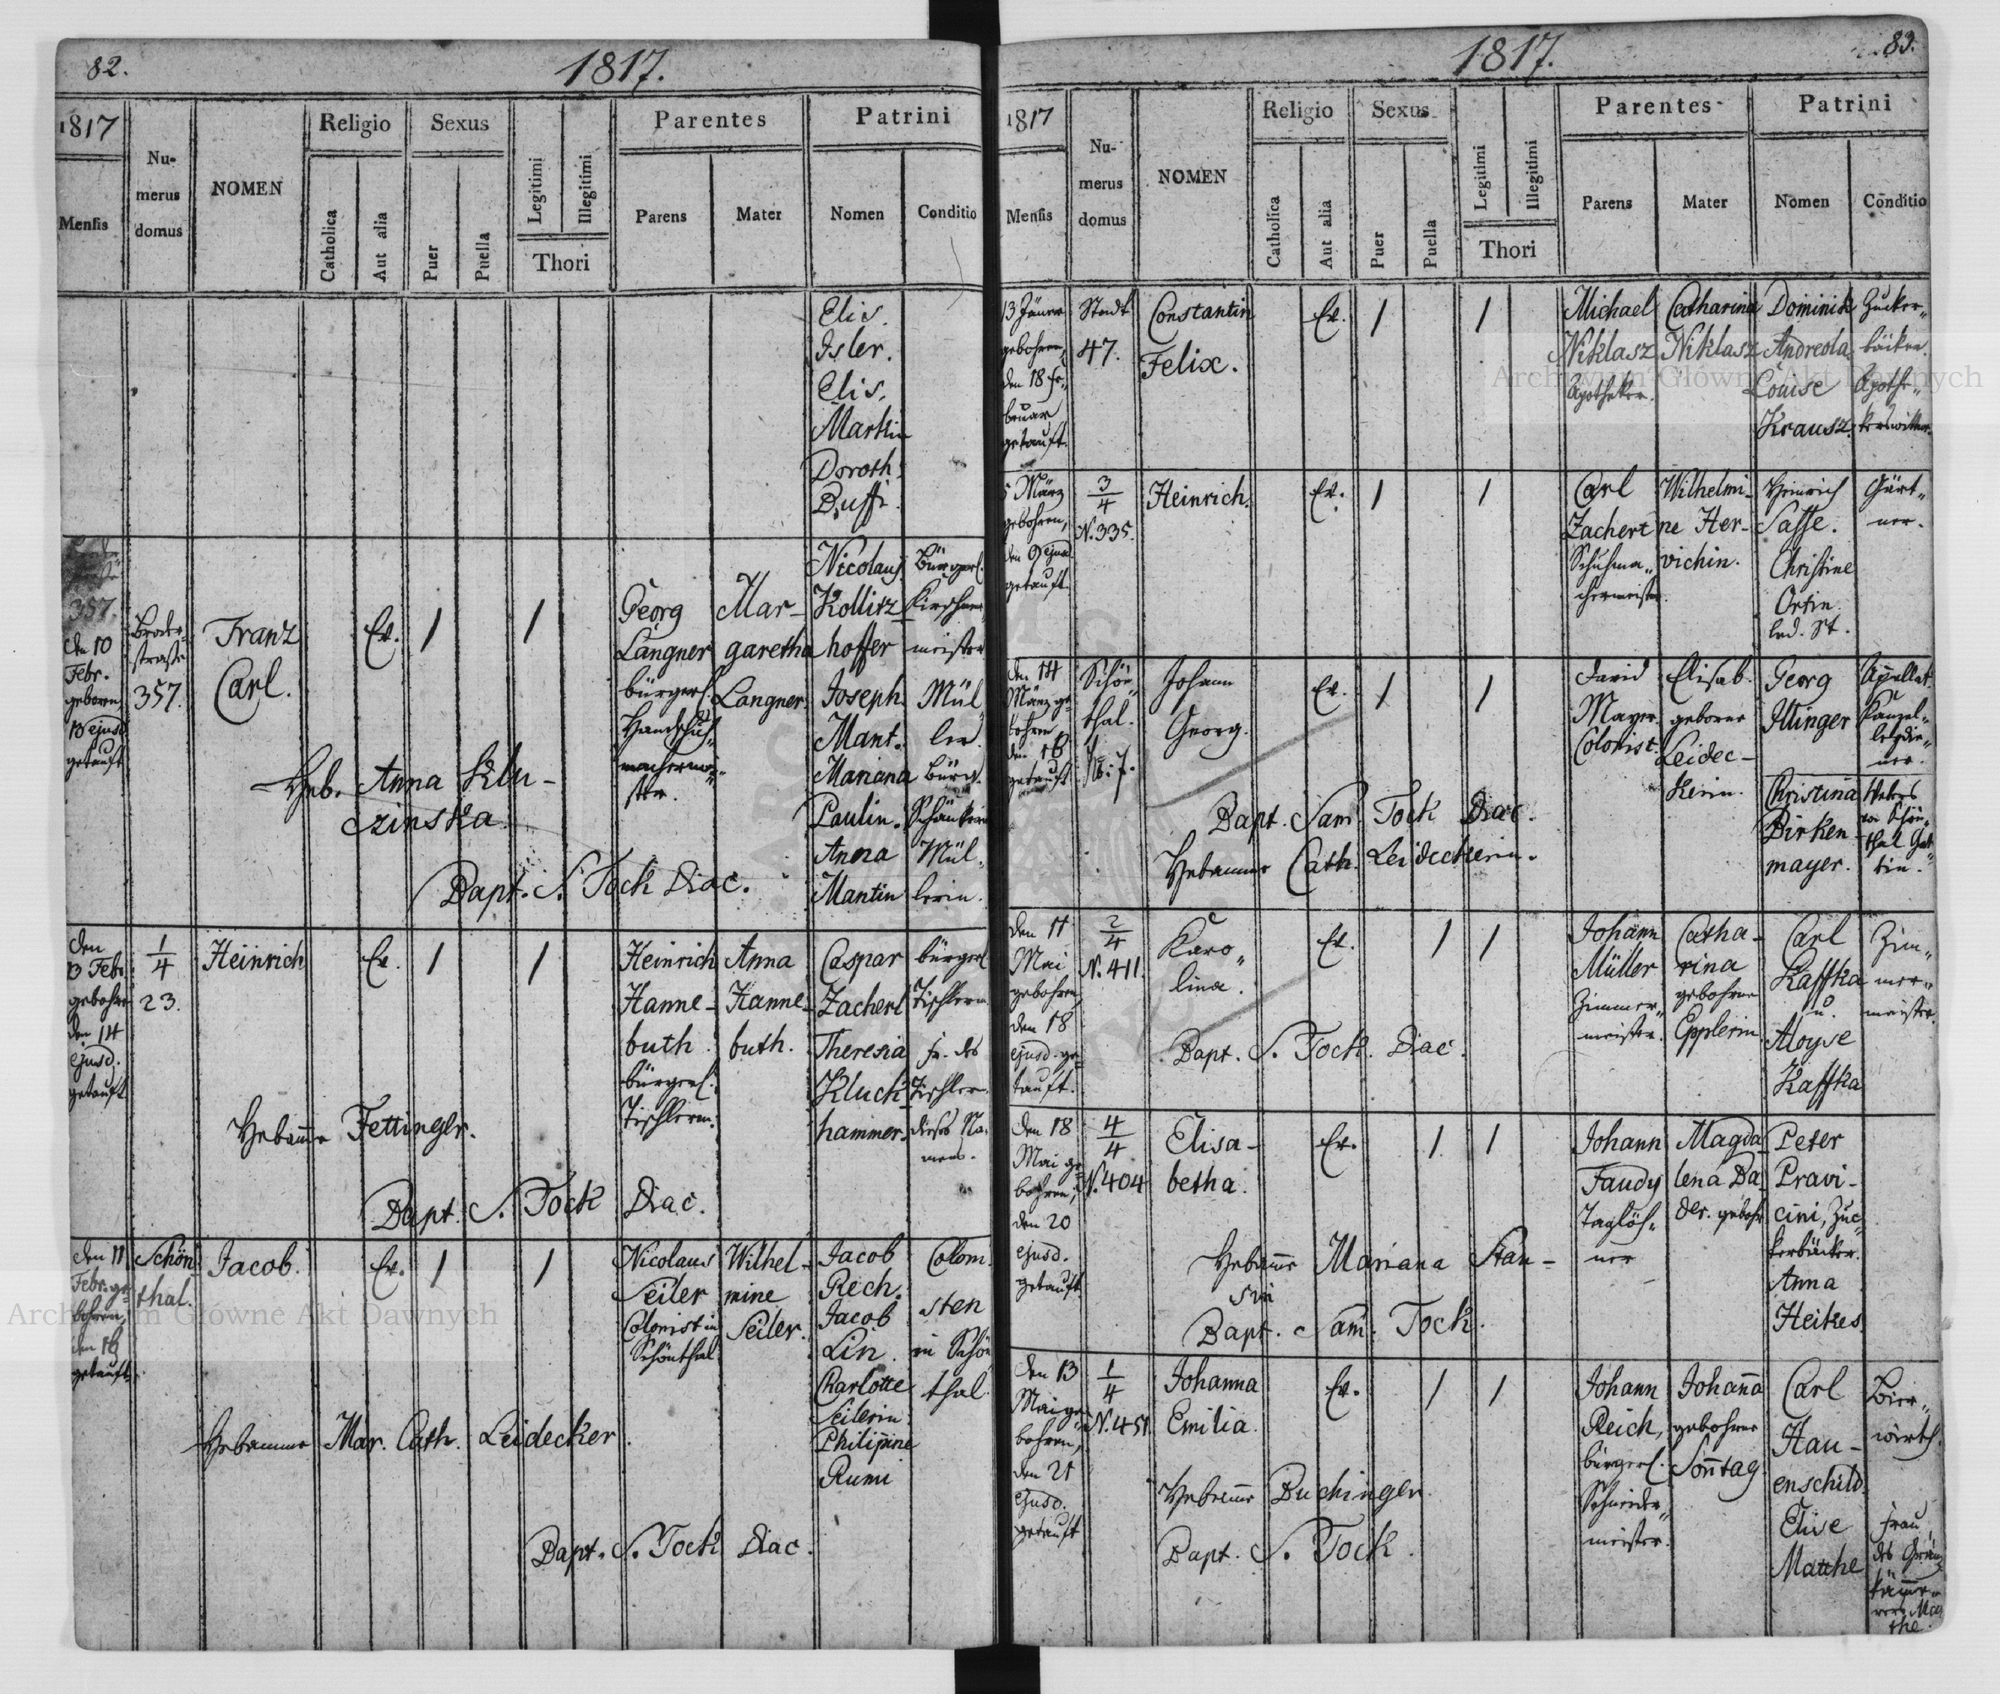 82.
1817.
1817
Mensis
Numerus domus
NOMEN
Religio
Catholica
Aut alia
Sexus
Puer
Puella
Legitimi
Illegitimi
Thori
Parentes
Parens
Mater
Patrini
Nomen
Conditio
Elis.
Isler.
Elis.
Martin
Doroth.
Buffi.
357.
den 10
Febr.
geboren,
13 ejusd
getauft
357.
Franz
Carl.
Ev.
1
1
Georg
Langner
bürgerl.
Handschuh-
macherme-
ster.
Mar-
garetha
Langner
Nicolaus
Kollisz-
hoffer
Joseph
Mant.
Mariana
Paulin.
Anna
Mantin
Bürgerl.
meister
Mül
ler.
Bürgl.
Schänkerin
Mül-
lerin.
Heb. Anna Klu-
czinska
Bapt. S. Tock Diac.
den
13 Febr.
gebohre
den 14
ejusd.
getauft
1/4
23.
Heinrich
Ev.
1
1
Heinrich
Hanne-
buth.
bürgerl.
Tischlerm.
Anna
Hanne-
buth.
Caspar
Zacherl
Theresia
Kluck-
hammer.
bürgerl.
Tischlerm.
Fr. des
Tischler-
dieses Na-
mens.
Hebamme Fettinglr.
Bapt. S. Tock Diac.
den 11
Febr. ge-
bohren,
den 16
getauft
Schön-
thal.
Jacob.
Ev.
1
1
Nicolaus
Seiler
Colonist in
Schönthal
Wilhel-
mine
Seiler.
Jacob
Rech.
Jacob
Lin
Charlotte
Seilerin
Philippine
Rumi
Coloni-
sten
in Schön
thal.
Hebamme Mar. Cath. Leidecker
Bapt. S. Tock Diac.
83.
1817.
1817
Mensis
Numerus domus
NOMEN
Religio
Catholica
Aut alia
Sexus
Puer
Puella
Legitimi
Illegitimi
Thori
Parentes
Parens
Mater
Patrini
Nomen
Conditio
13 Jänner
gebohren,
den 18 Fe-
bruar
getauft.
Stadt
47.
Constantin
Felix.
Ev.
1
1
Michael
Niklasz
Apotheker.
Catharina
Niklasz
Dominik
Andreola
Louise
Krausz.
Zucker-
bäcker.
Apothe-
kerswittwe.
5 März
gebohren,
den 9 ejusd
getauft.
3/4
N. 335.
Heinrich.
Ev.
1
1
Carl
Zachert
Schuhma-
chermeister.
Wilhelmi-
ne Her-
vichin.
Heinrich
Sasse.
Christine
Ortin.
led. St.
Gärt-
ner.
den 14
März ge-
bohren
den 16
getauft
Schön-
thal.
N. 7.
Johann
Georg.
Ev.
1
1
David
Mayer.
Colonist.
Elisab.
geborne
Leidec-
kerin.
Georg
Illinger
Christina
Birken-
mayer.
Appellat.
Kanzel-
leydie-
ner.
Webers
von Schön-
thal Gat-
tin.
Bapt. Sam Tock Diac.
Hebamme Cath. Leideckerin.
den 11
Mai
gebohren,
den 18
ejusd. ge-
tauft.
2/4
N. 411.
Karo-
lina.
Ev.
1
1
Johann
Müller
Zimmer-
meister.
Catha-
rina
gebohrne
Epplerin
Carl
Kaffka
u.
Aloyse
Kaffka
Zim-
mer-
meister.
Bapt. S. Tock. Diac.
den 18
Mai ge-
bohren,
den 20
ejusd.
getauft
4/4
N. 404
Elisa-
betha.
Ev.
1
1
Johann
Faudy
Taglöh-
ner
Magda
lena Ba-
der. gebohr
Peter
Pravi-
cini, Zuc-
kerbäcker.
Anna
Heikes
Hebamme Mariana Stan-
Bapt. Sam. Tock.
den 13
Mai ge-
bohren,
den 21
ejusd.
getauft
1/4
N. 451.
Johanna
Emilia.
Ev.
1
1
Johann
Reich,
bürgerl.
Schneider-
meister.
Johanna
gebohrne
Sonntag
Carl
Hau-
enschild.
Elise
Matthe
Bier-
wirth.
Frau
des
Hebamme Buchinger.
Bapt. S. Tock.
Archiwum Główne Akt Dawnych
Archiwum Główne Akt Dawnych